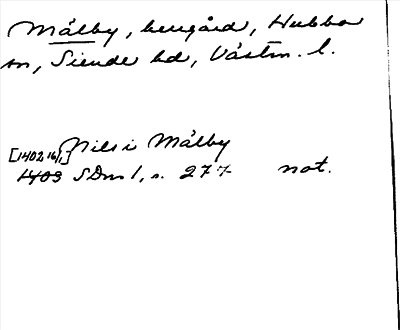 Målby, herrgård, Hubbo
sn, Siende hd, Västm. l.
Nils i Målby
[1402 16/1]
1403 SDns 1, s. 277 not.